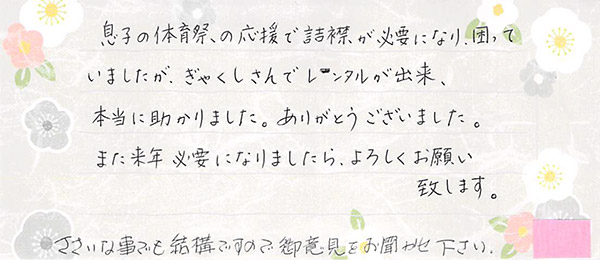 息子の体育祭、の応援で詰襟が必要になり、困って
いましたが、ぎゃくしさんでレンタルが出来、
本当に助かりました。ありがとうございました。
また来年必要になりましたら、よろしくお願い
致します。
ささいな事でも結構ですので御意見をお聞かせ下さい。